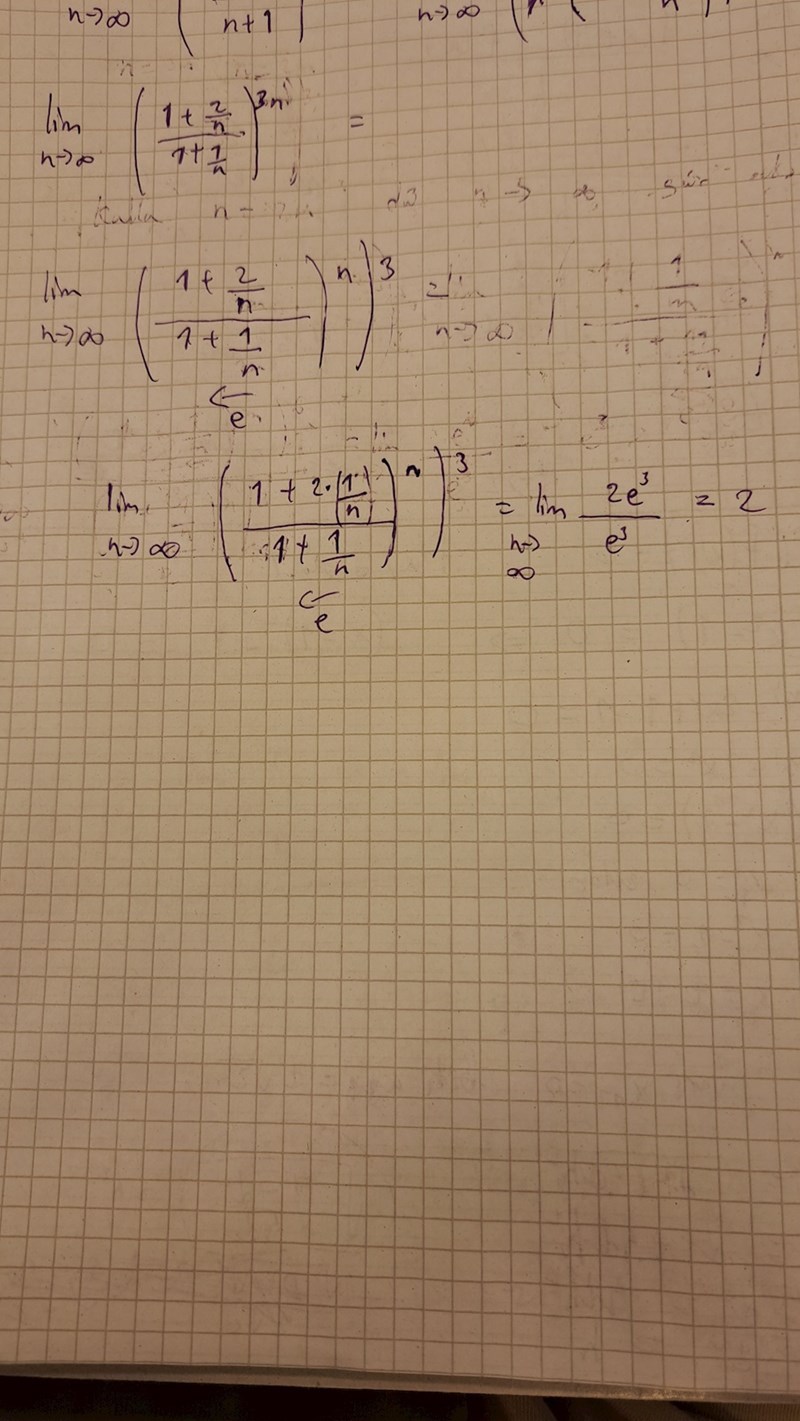 lim n→∞ ( n+1 lim n→∞ (n ( n )
lim n→∞ ( (1 + 2/n) / (1 + 1/n) )^3n =
n → ∞
lim n→∞ ( (1 + 2/n) / (1 + 1/n) )^n )^3 = lim n→∞
← e
lim n→∞ ( (1 + 2·(1/n)) / (1 + 1/n) )^n )^3 = lim n→∞ 2e^3 / e^3 = 2
← e